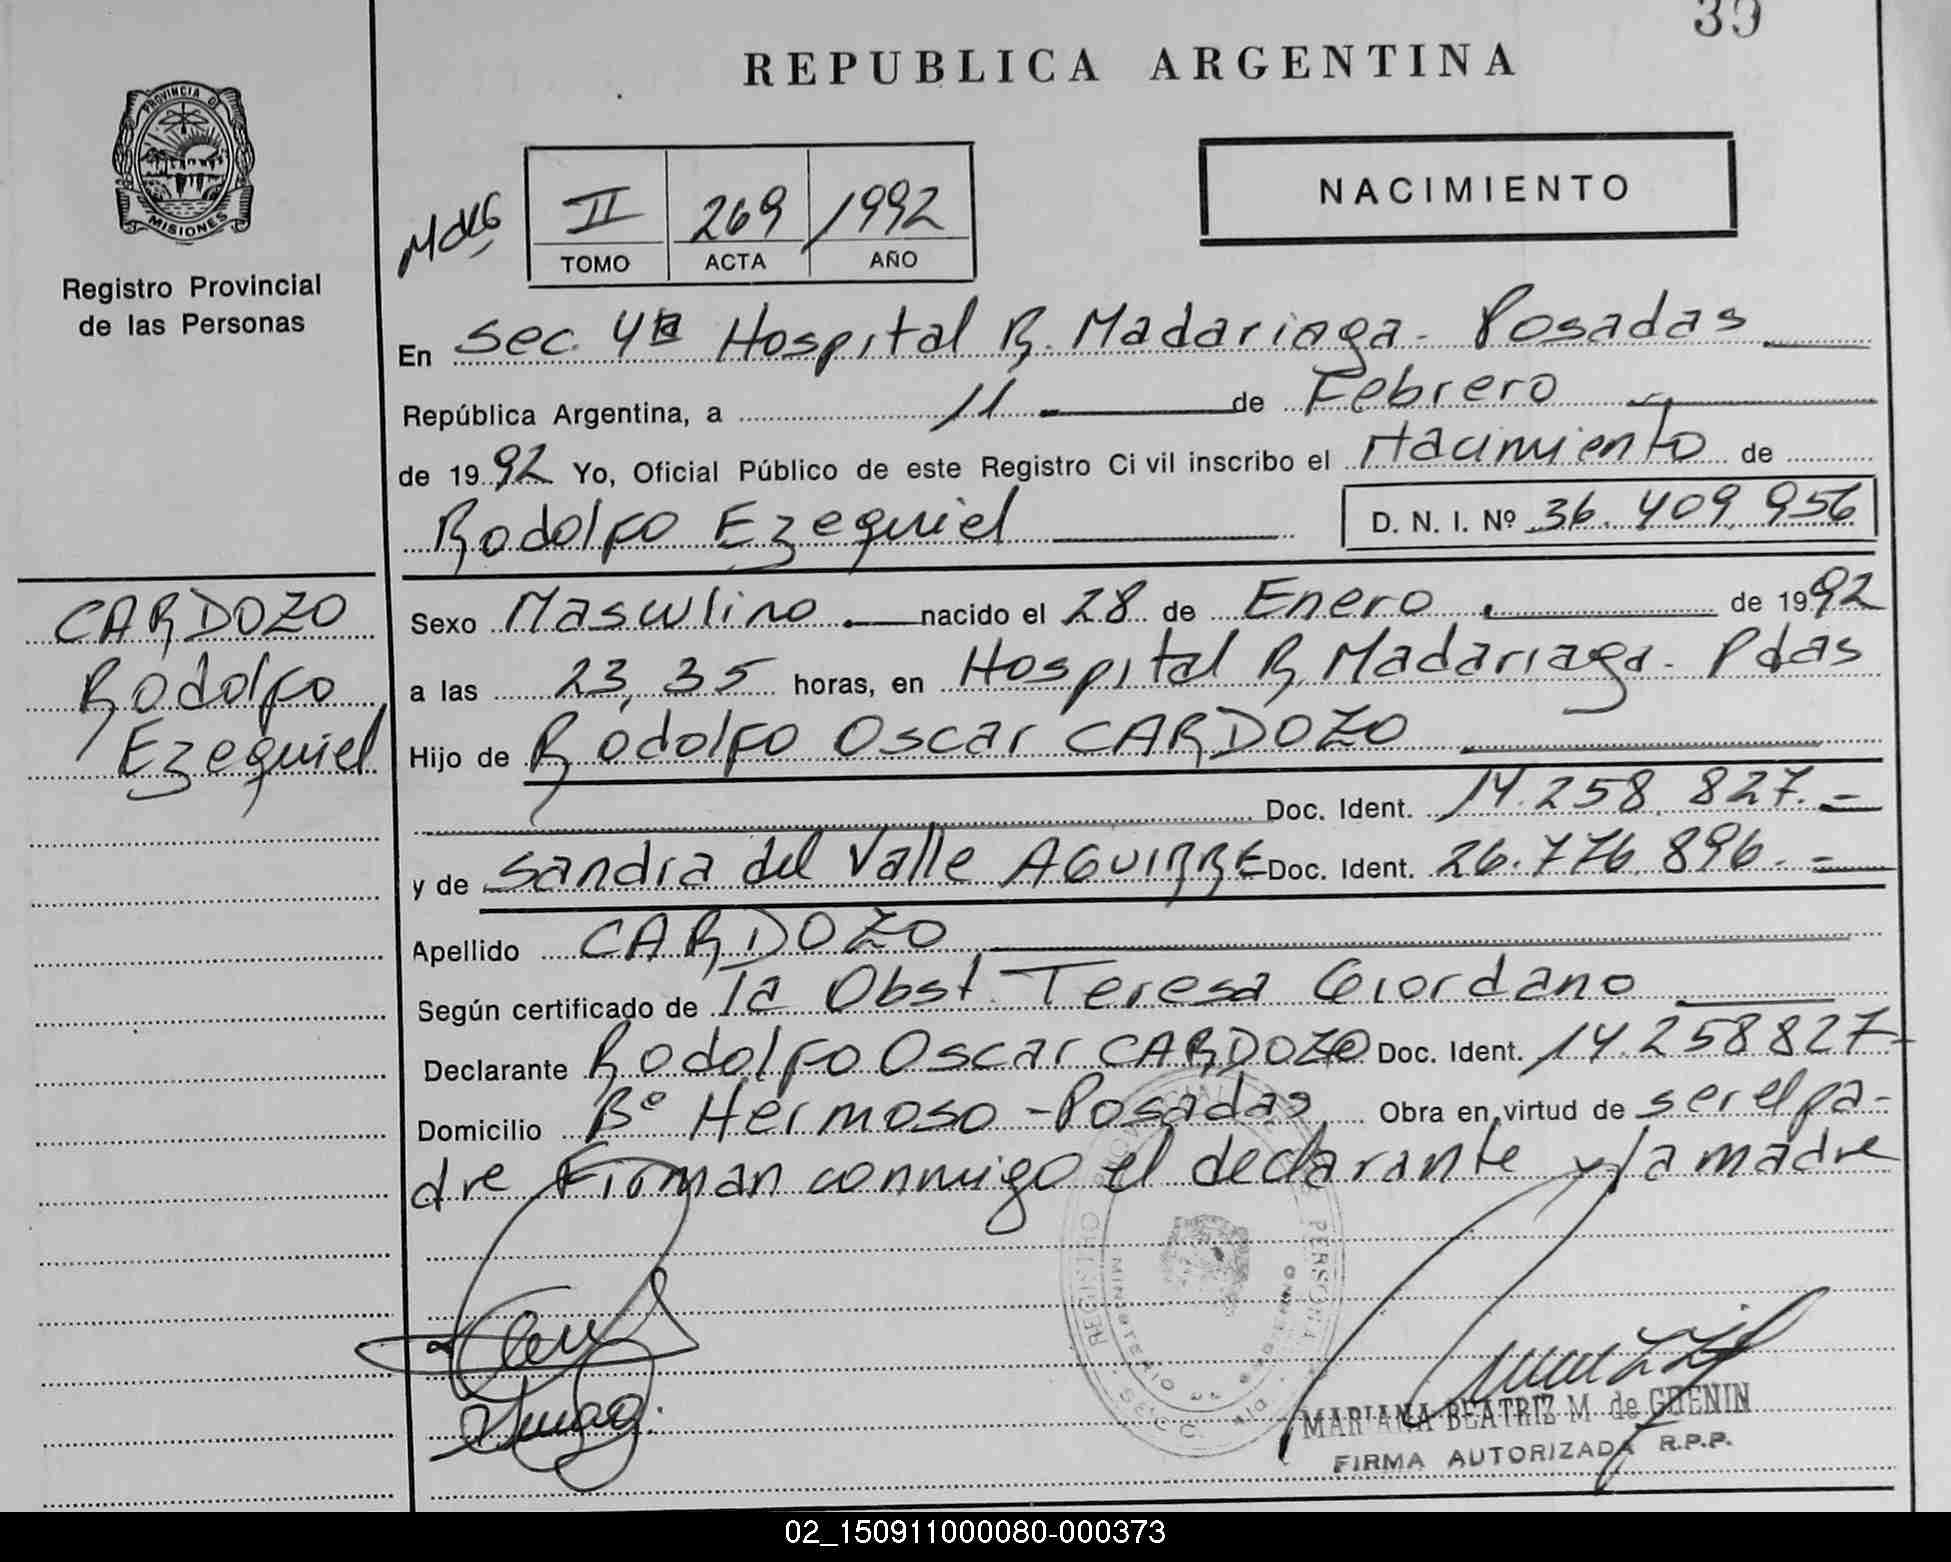 39
REPUBLICA ARGENTINA
PROVINCIA DE
MISIONES
Registro Provincial
de las Personas
NACIMIENTO
II 269 1992
TOMO ACTA AÑO
En Sec. 4ta Hospital R. Madariaga - Posadas
República Argentina, a 11 de Febrero
de 1992 Yo, Oficial Público de este Registro Civil inscribo el Nacimiento de
Rodolfo Ezequiel D. N. I. Nº 36.409.956
CARDOZO
Rodolfo
Ezequiel
Sexo Masculino. nacido el 28 de Enero . de 1992
a las 23,35 horas, en Hospital R. Madariaga - Pdas
Hijo de Rodolfo Oscar CARDOZO
Doc. Ident. 14.258.827.-
y de Sandra del Valle AGUIRRE Doc. Ident. 26.776.896.-
Apellido CARDOZO
Según certificado de la Obst. Teresa Giordano
Declarante Rodolfo Oscar CARDOZO Doc. Ident. 14.258827-
Domicilio Bº Hermoso - Posadas Obra en virtud de ser el pa-
dre Firman conmigo el declarante y la madre
MARIANA BEATRIZ M. de GUENIN
FIRMA AUTORIZADA R.P.P.
02_150911000080-000373